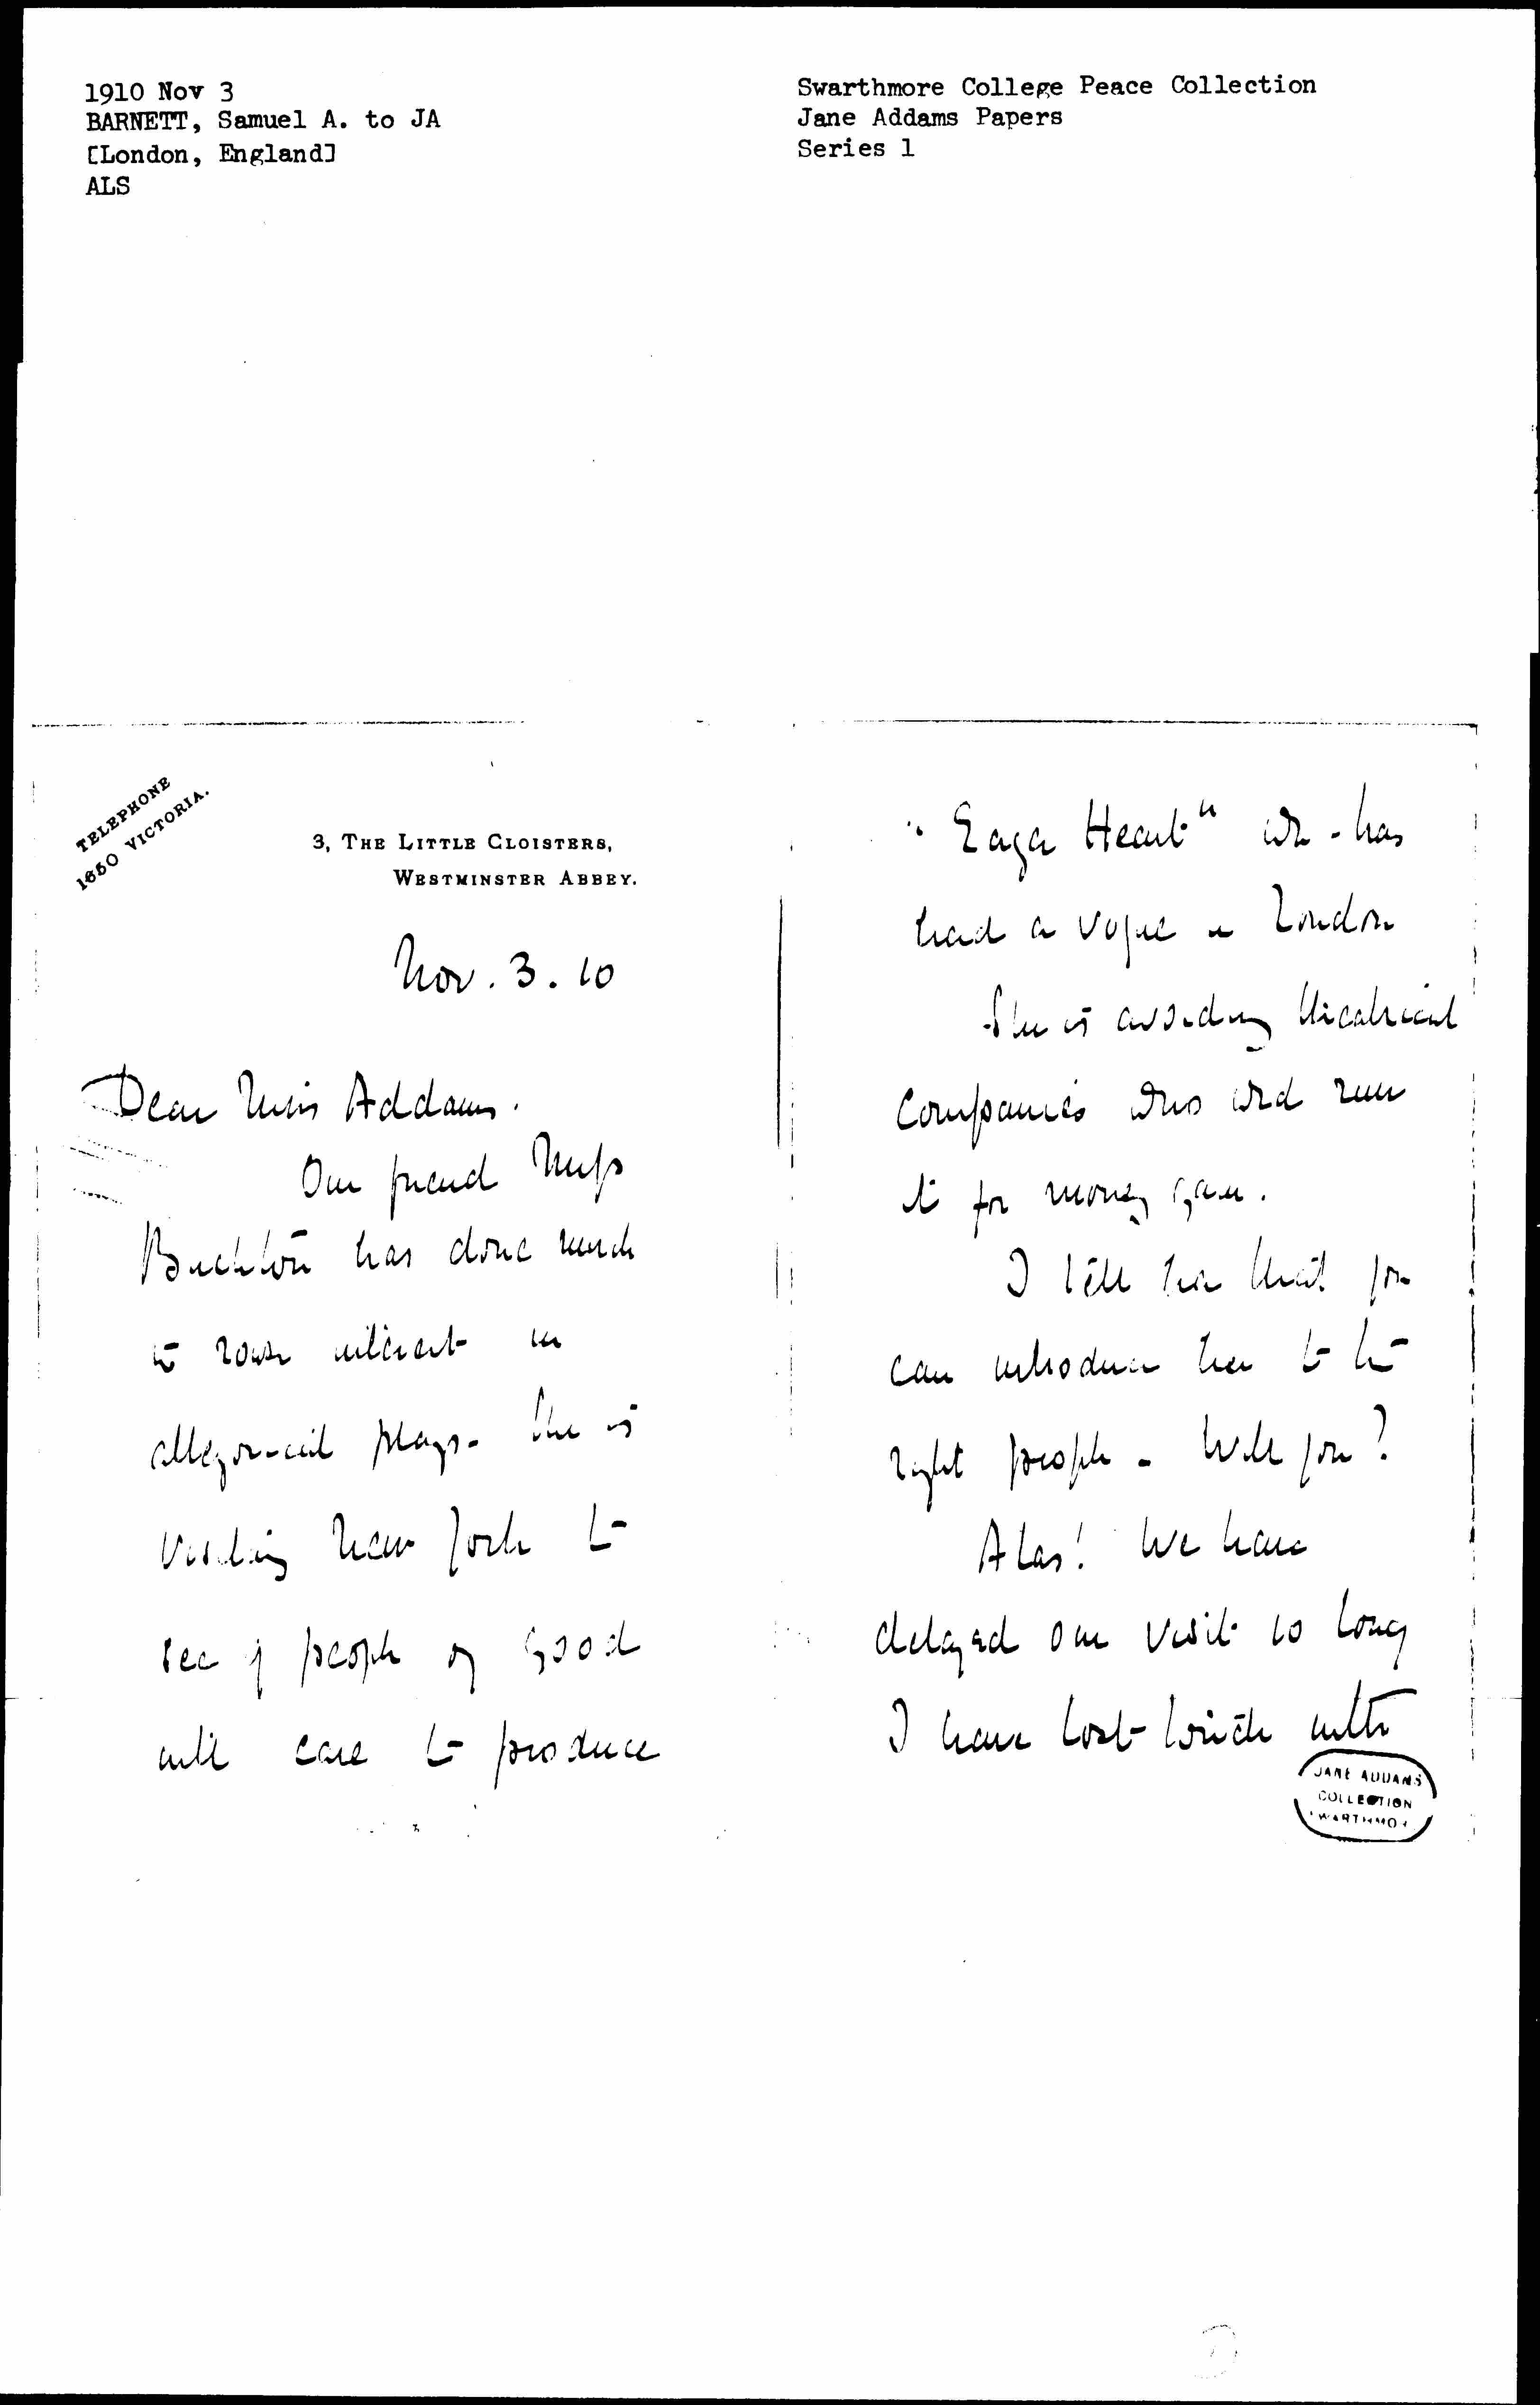 1910 Nov 3
BARNETT, Samuel A. to JA
[London, England]
ALS
Swarthmore College Peace Collection
Jane Addams Papers
Series 1
TELEPHONE
1650 VICTORIA.
3, THE LITTLE CLOISTERS,
WESTMINSTER ABBEY.
Nov. 3. 10
Dear Miss Addams.
Our friend Miss
Buckton has done much
to rouse interest in
allegorical plays. She is
visiting New York to
see if people of good
will care to produce
"Eager Heart" wh - has
had a vogue in London
She is avoiding theatrical
companies who wld run
it for money gain.
I tell her that you
can introduce her to the
right people - Will you?
Alas! We have
delayed our visit so long
I have lost touch with
JANE ADDAMS
COLLECTION
SWARTHMORE